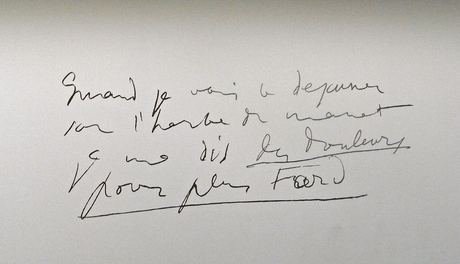 Quand je vois le dejeuner
sur l'herbe de manet
je me dis des douleurs
pour plus Tard